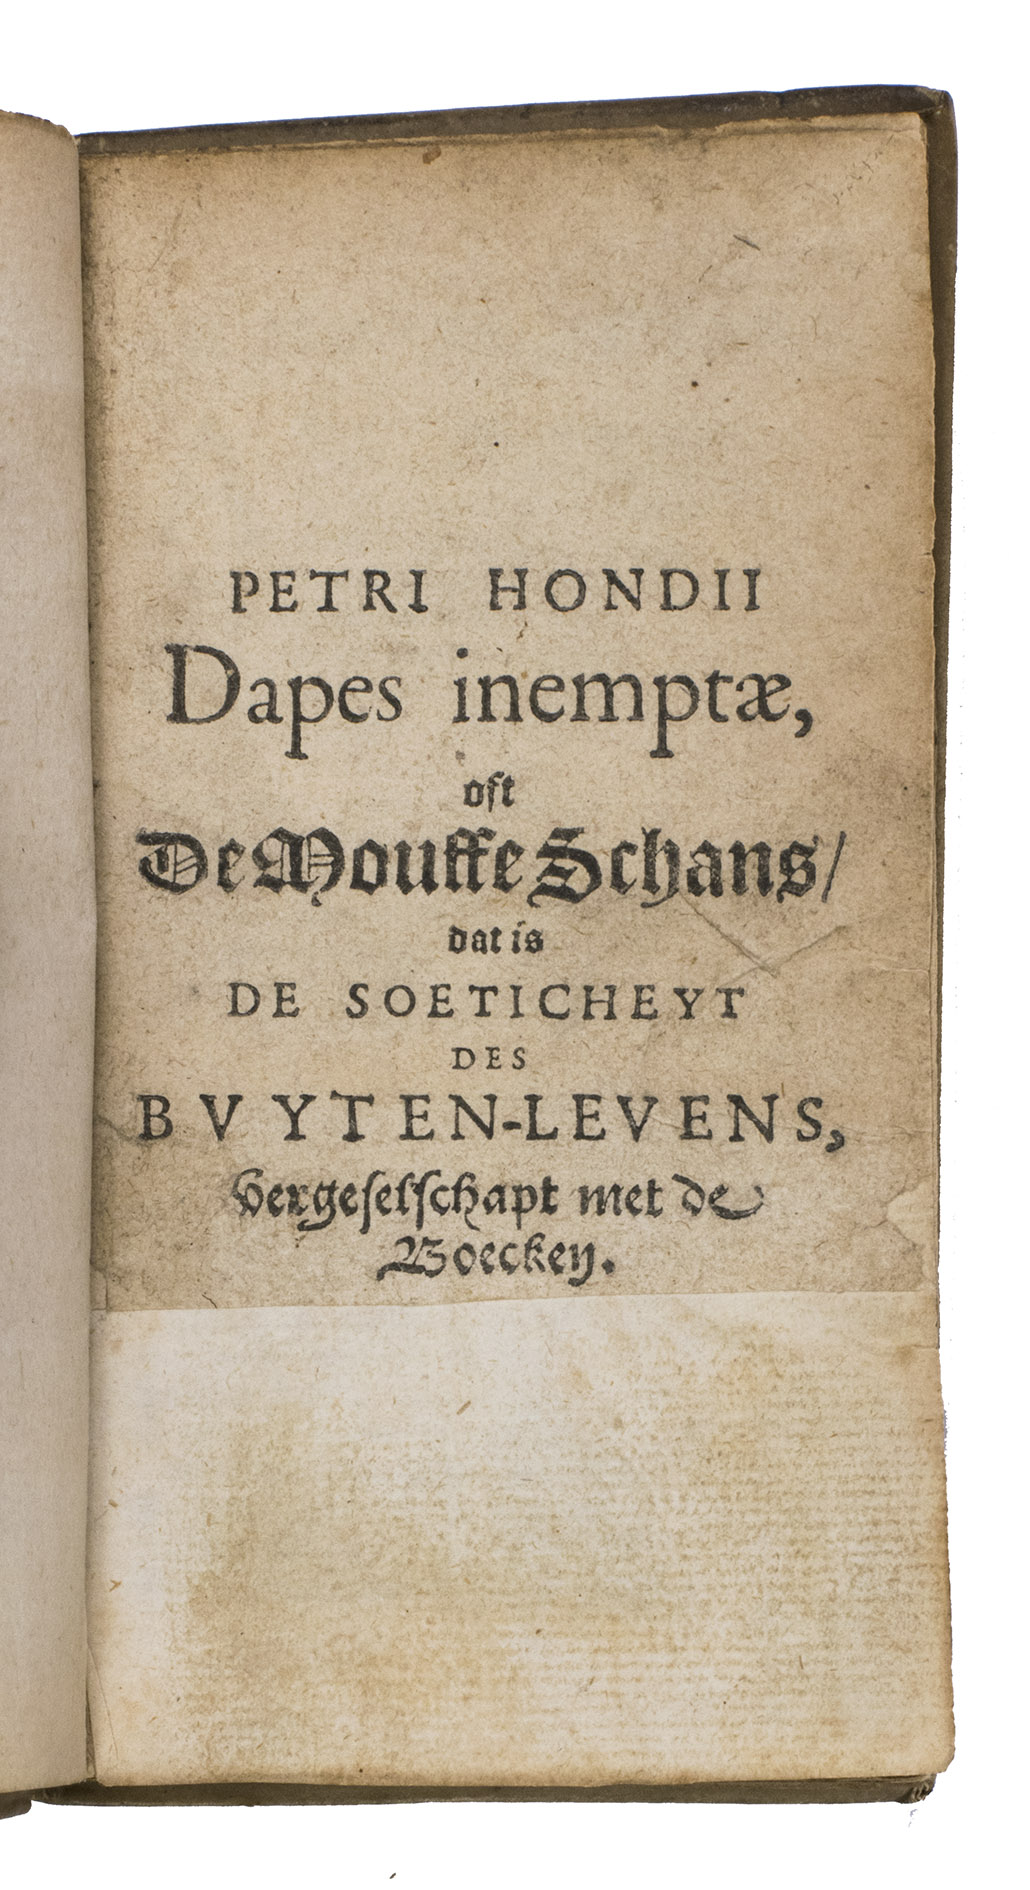 PETRI HONDII
Dapes inemptæ,
oft
De Mouffe Schans/
dat is
DE SOETICHEYT
DES
BVYTEN-LEVENS,
Vergeselschapt met de
Boecken.